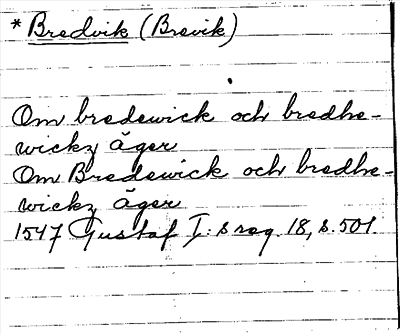 * Bredvik (Brevik)
Om bredewick och bredhe-
wickz äger
Om Bredewick och bredhe-
wickz äger
1547 Gustaf I:s reg. 18, s. 501